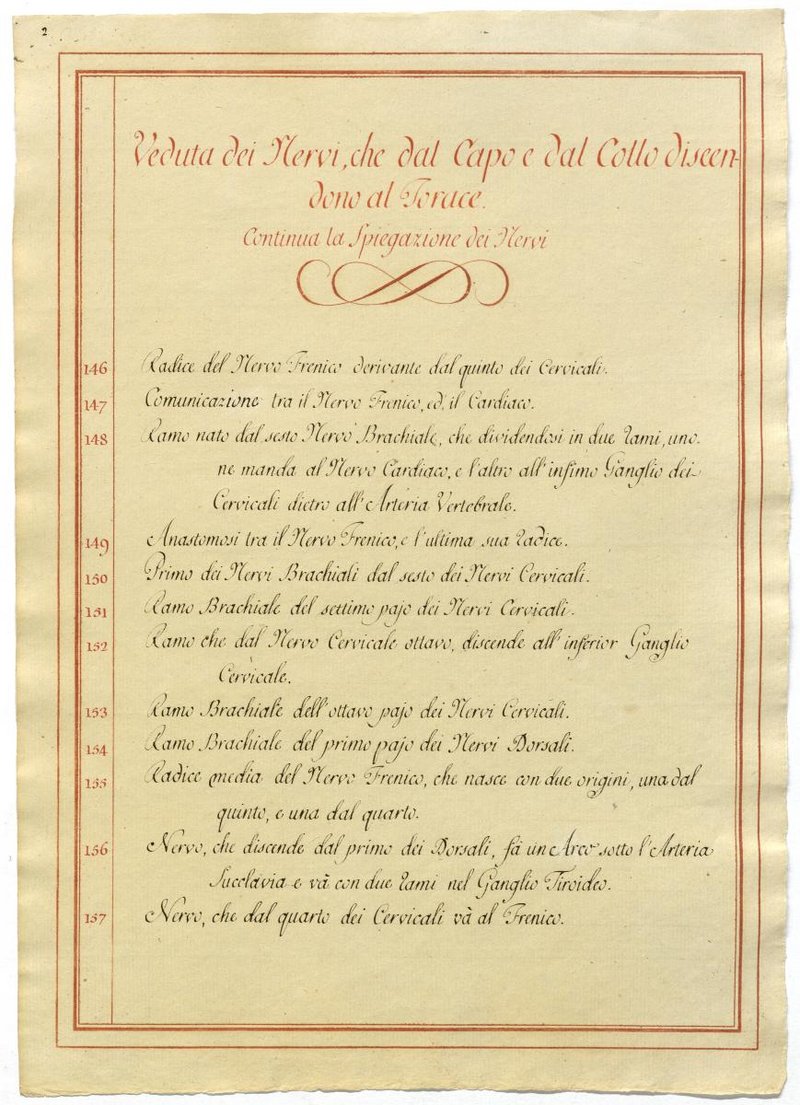 2
Veduta dei Nervi, che dal Capo e dal Collo discen-
dono al Torace.
Continua la Spiegazione dei Nervi
146 Radice del Nervo Frenico derivante dal quinto dei Cervicali.
147 Comunicazione tra il Nervo Frenico, ed il Cardiaco.
148 Ramo nato dal sesto Nervo Brachiale, che dividendosi in due rami, uno
ne manda al Nervo Cardiaco, e l'altro all'infimo Ganglio dei
Cervicali dietro all'Arteria Vertebrale.
149 Anastomosi tra il Nervo Frenico, e l'ultima sua radice.
150 Primo dei Nervi Brachiali dal sesto dei Nervi Cervicali.
151 Ramo Brachiale del settimo pajo dei Nervi Cervicali.
152 Ramo che dal Nervo Cervicale ottavo, discende all'inferior Ganglio
Cervicale.
153 Ramo Brachiale dell'ottavo pajo dei Nervi Cervicali.
154 Ramo Brachiale del primo pajo dei Nervi Dorsali.
155 Radice media del Nervo Frenico, che nasce con due origini, una dal
quinto, e una dal quarto.
156 Nervo, che discende dal primo dei Dorsali, fà un Arco sotto l'Arteria
Succlavia e và con due rami nel Ganglio Tiroideo.
157 Nervo, che dal quarto dei Cervicali và al Frenico.